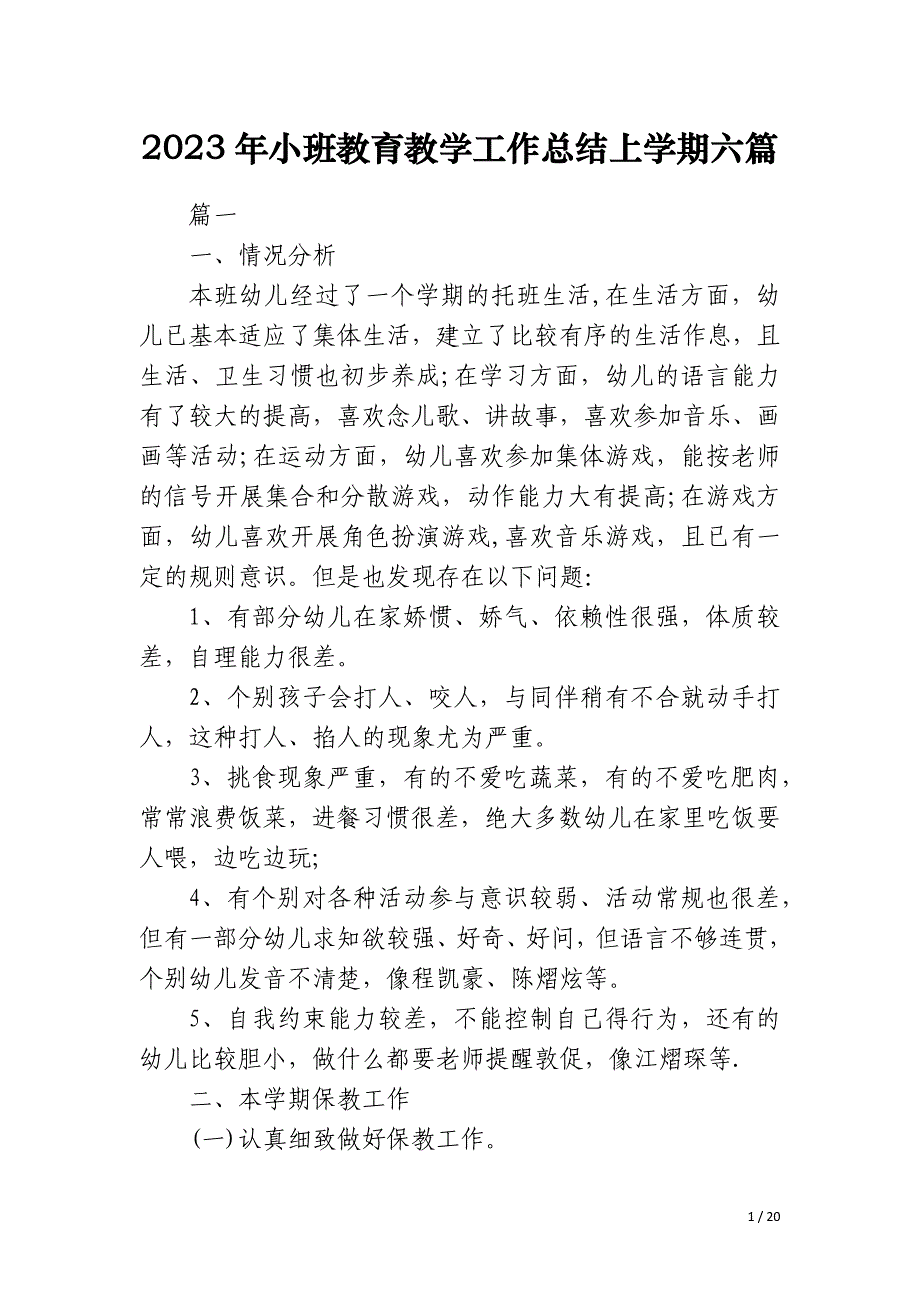 2023 年小班教育教学工作总结上学期六篇
篇一
一、情况分析
本班幼儿经过了一个学期的托班生活,在生活方面，幼
儿已基本适应了集体生活，建立了比较有序的生活作息，且
生活、卫生习惯也初步养成;在学习方面，幼儿的语言能力
有了较大的提高，喜欢念儿歌、讲故事，喜欢参加音乐、画
画等活动;在运动方面，幼儿喜欢参加集体游戏，能按老师
的信号开展集合和分散游戏，动作能力大有提高;在游戏方
面，幼儿喜欢开展角色扮演游戏,喜欢音乐游戏，且已有一
定的规则意识。但是也发现存在以下问题:
1、有部分幼儿在家娇惯、娇气、依赖性很强，体质较
差，自理能力很差。
2、个别孩子会打人、咬人，与同伴稍有不合就动手打
人，这种打人、掐人的现象尤为严重。
3、挑食现象严重，有的不爱吃蔬菜，有的不爱吃肥肉，
常常浪费饭菜，进餐习惯很差，绝大多数幼儿在家里吃饭要
人喂，边吃边玩;
4、有个别对各种活动参与意识较弱、活动常规也很差，
但有一部分幼儿求知欲较强、好奇、好问，但语言不够连贯，
个别幼儿发音不清楚，像程凯豪、陈熠炫等。
5、自我约束能力较差，不能控制自己得行为，还有的
幼儿比较胆小，做什么都要老师提醒敦促，像江熠琛等.
二、本学期保教工作
(一)认真细致做好保教工作。
1 / 20